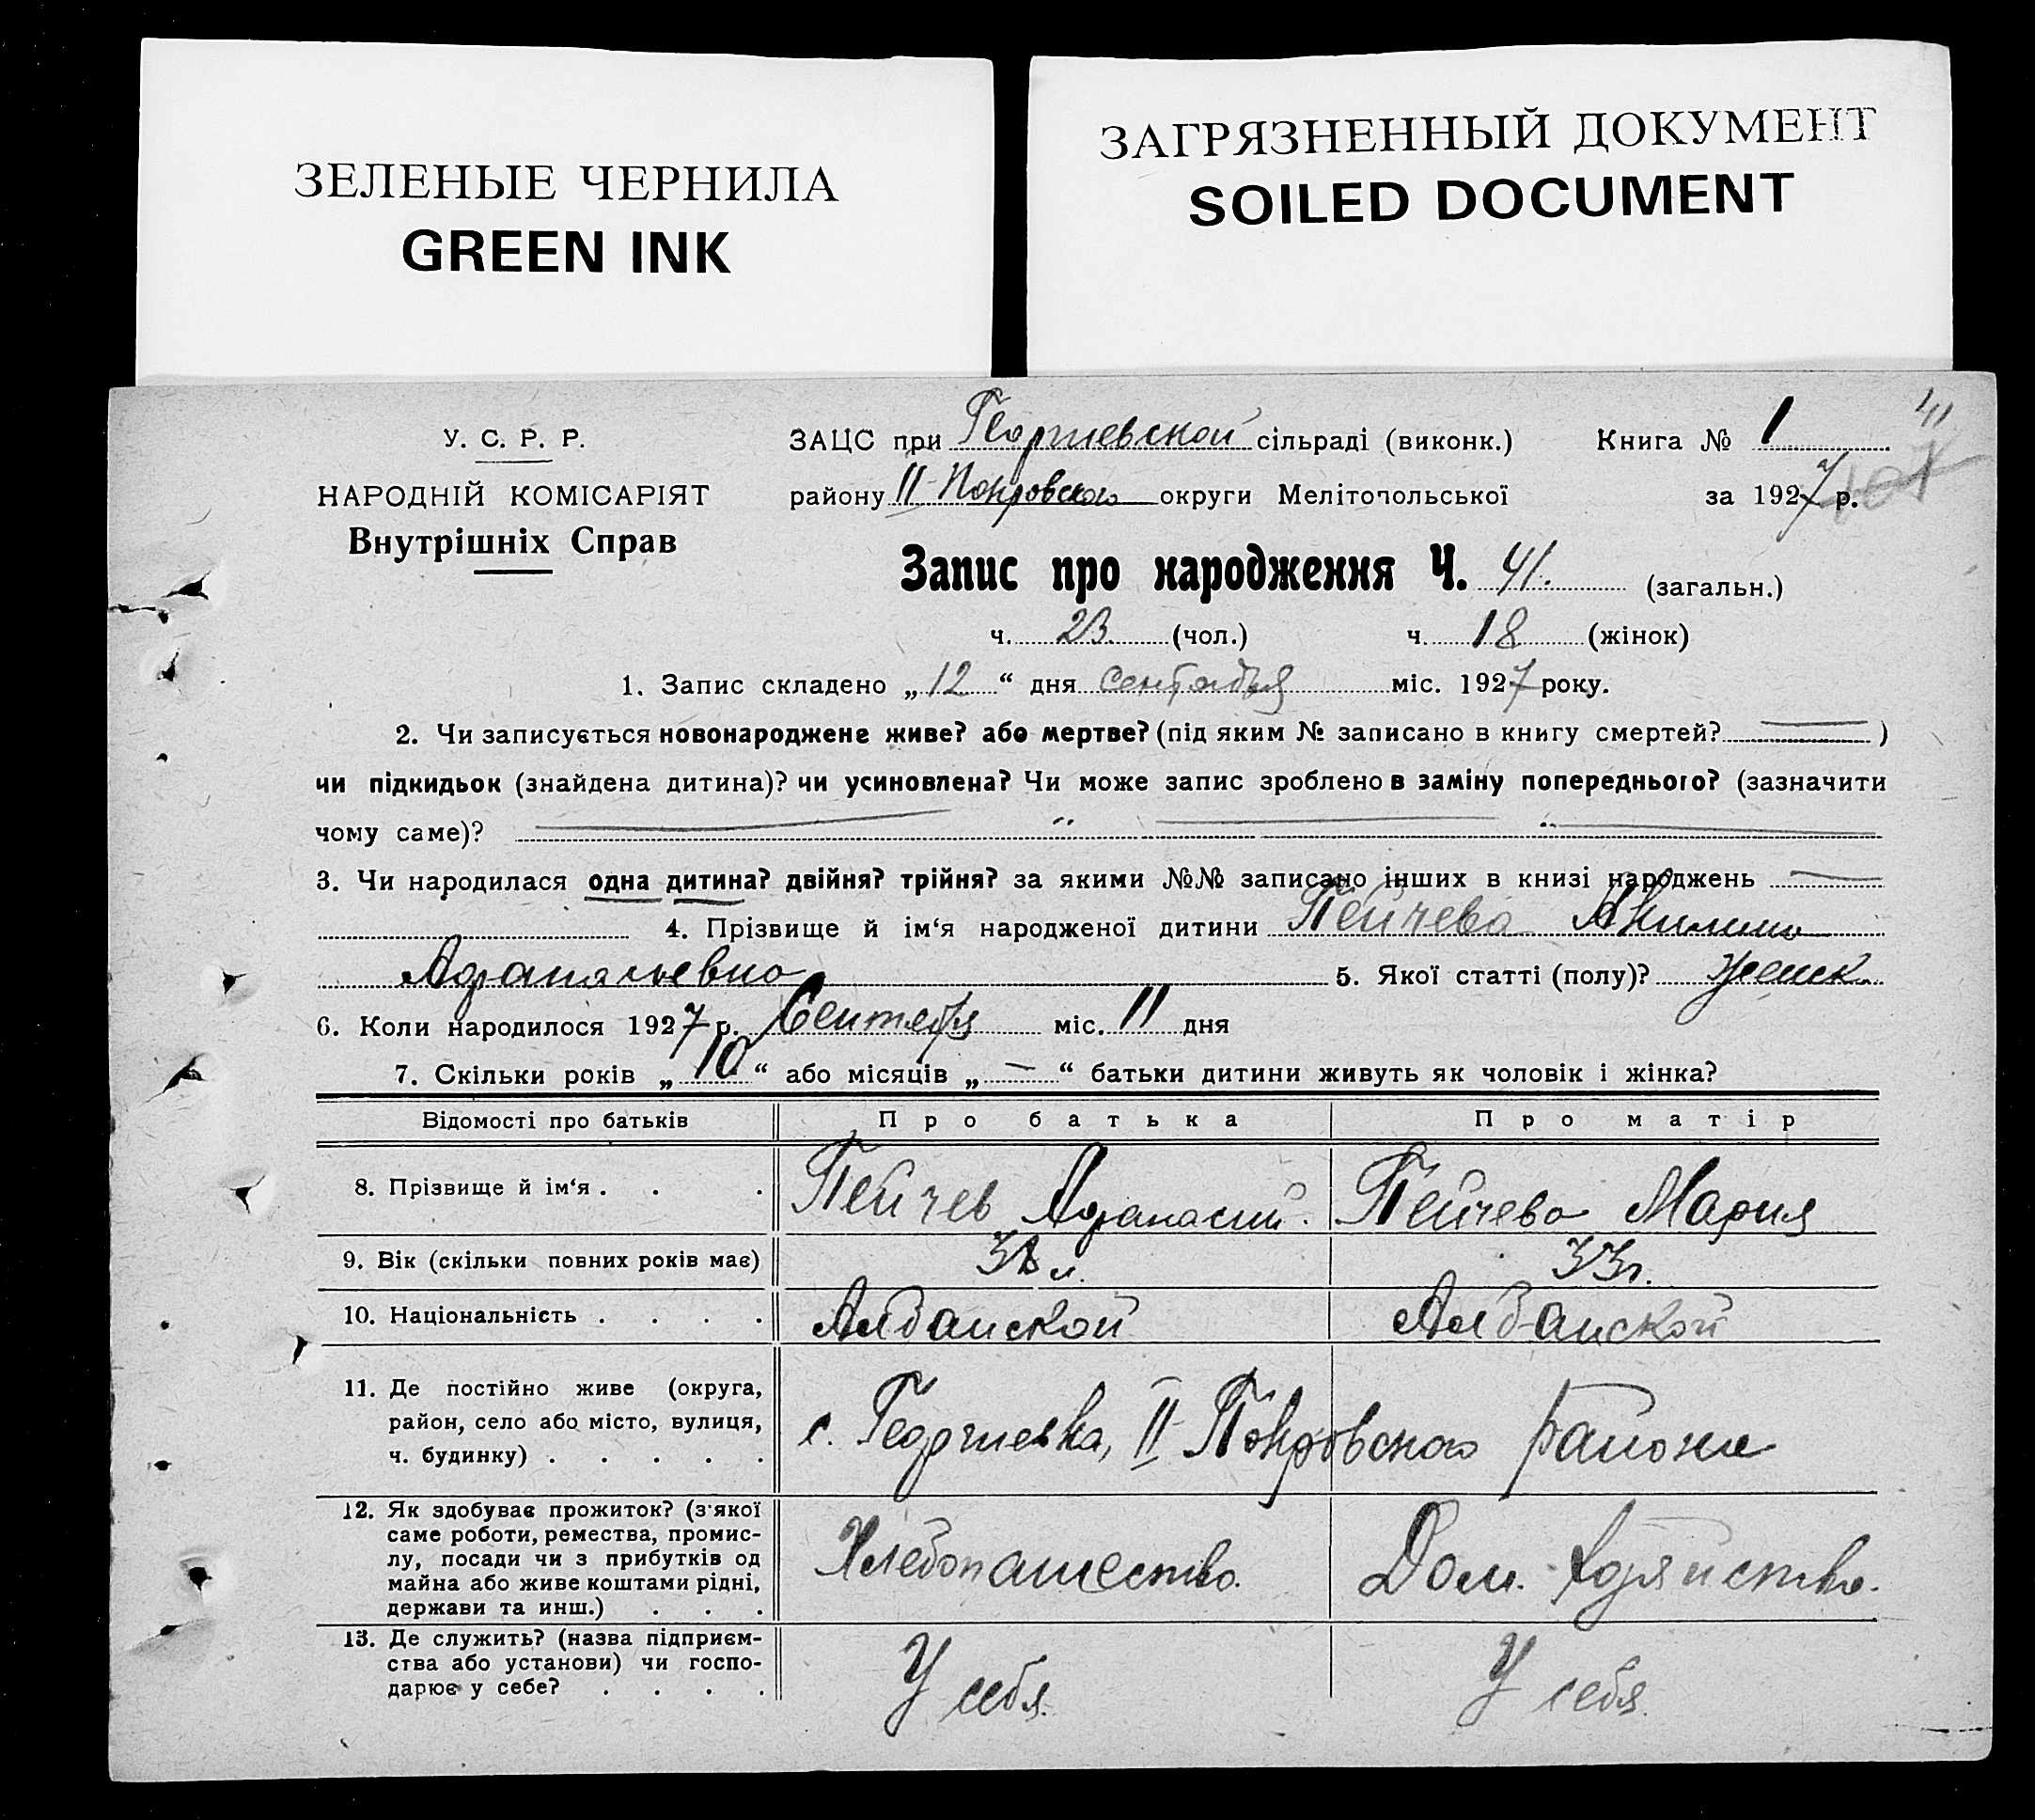 ЗЕЛЕНЫЕ ЧЕРНИЛА
GREEN INK
ЗАГРЯЗНЕННЫЙ ДОКУМЕНТ
SOILED DOCUMENT
У. С. Р. Р.
НАРОДНІЙ КОМІСАРІЯТ
Внутрішніх Справ
ЗАЦС при Георгиевской сільраді (виконк.) Книга № 1
району II-Покровского округи Мелітопольської за 1927 р.
Запис про народження Ч. 41. (загальн.)
ч. 23 (чол.) ч. 18 (жінок)
1. Запис складено „12“ дня сентября міс. 1927 року.
2. Чи записується новонароджене живе? або мертве? (під яким № записано в книгу смертей? —)
чи підкидьок (знайдена дитина)? чи усиновлена? Чи може запис зроблено в заміну попереднього? (зазначити
чому саме)? — „ — „ —
3. Чи народилася одна дитина? двійня? трійня? за якими №№ записано інших в книзі народжень —
4. Прізвище й ім‘я народженої дитини Пейчева Акилина
Афанасьевна 5. Якої статті (полу)? женск.
6. Коли народилося 1927 р. Сентября міс. 11 дня
7. Скільки років „10“ або місяців „—“ батьки дитини живуть як чоловік і жінка?
Відомості про батьків Про батька Про матір
8. Прізвище й ім‘я . . . Пейчев Афанасий. Пейчева Мария
9. Вік (скільки повних років має) л. 33 г.
10. Національність . . . . Албанской Албанской
11. Де постійно живе (округа,
район, село або місто, вулиця,
ч. будинку) . . . . .
с. Георгиевка, II-Покровского района
12. Як здобуває прожиток? (з‘якої
саме роботи, ремества, промис-
лу, посади чи з прибутків од
майна або живе коштами рідні,
держави та инш.) . . .
Хлебопашество. Дом. хозяйство.
13. Де служить? (назва підприєм-
ства або установи) чи госпо-
дарює у себе? . . . .
У себя. У себя.